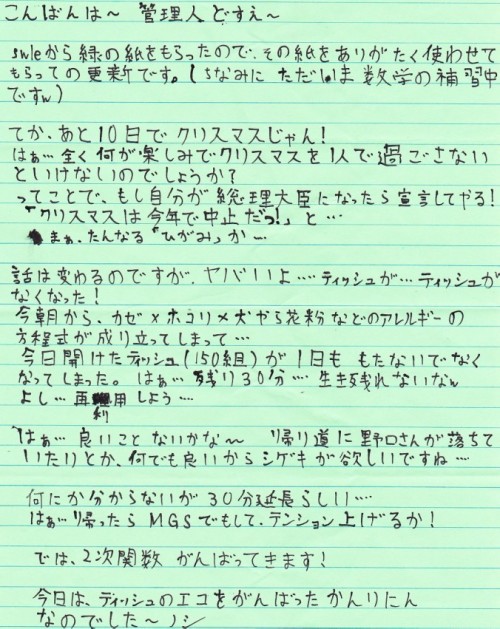 こんばんは～ 管理人どすえ～
swleから緑の紙をもらったので、その紙をありがたく使わせて
もらっての更新です。(ちなみに ただいま 数学の補習中
ですw)
てか、あと10日で クリスマスじゃん!
はぁ…全く何が楽しみでクリスマスを1人で過ごさない
といけないのでしょうか?
ってことで、もし自分が総理大臣になったら宣言してやる!
「クリスマスは今年で中止だっ!」と…
まぁ、たんなる「ひがみ」か…
話は変わるのですが、ヤバいよ…ティッシュが…ティッシュが
なくなった!
今朝から、カゼ×ホコリ×犬やら花粉などのアレルギーの
方程式が成り立ってしまって…
今日開けたティッシュ(150組)が1日も もたないでなく
なってしまった。はぁ…残り30分…生き残れないなw
よし…再利用しよう…
はぁ…良いことないかな～ 帰り道に野口さんが落ちて
いたりとか、何でも良いからシゲキが欲しいですね…
何にか分からないが30分延長らしい…
はぁ…帰ったらMGSでもして、テンション上げるか!
では、2次関数がんばってきます!
今日は、ティッシュのエコをがんばったかんりにん
なのでした～ノシ